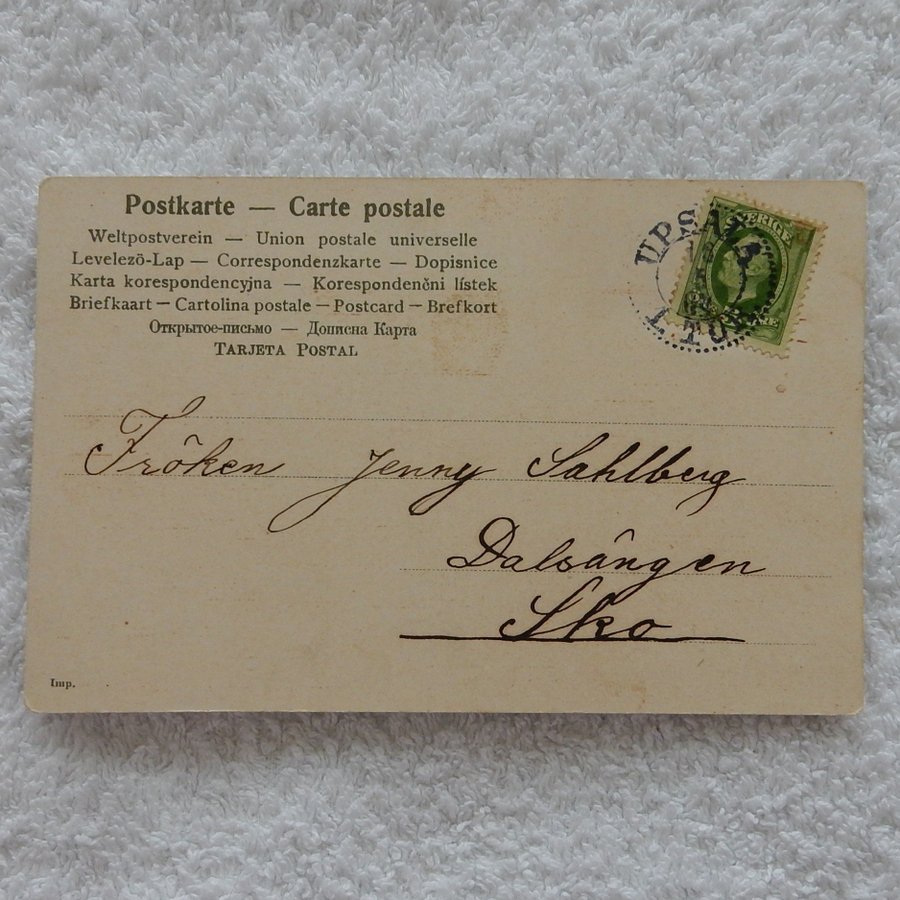 Postkarte — Carte postale
Weltpostverein — Union postale universelle
Levelezö-Lap — Correspondenzkarte — Dopisnice
Karta korespondencyjna — Korespondenčni lístek
Briefkaart — Cartolina postale — Postcard — Brefkort
Открытое-письмо — Дописна Карта
TARJETA POSTAL
UPSALA
SVERIGE
L.TUR
Fröken Jenny Sahlberg
Dalsängen
Sko
Imp.